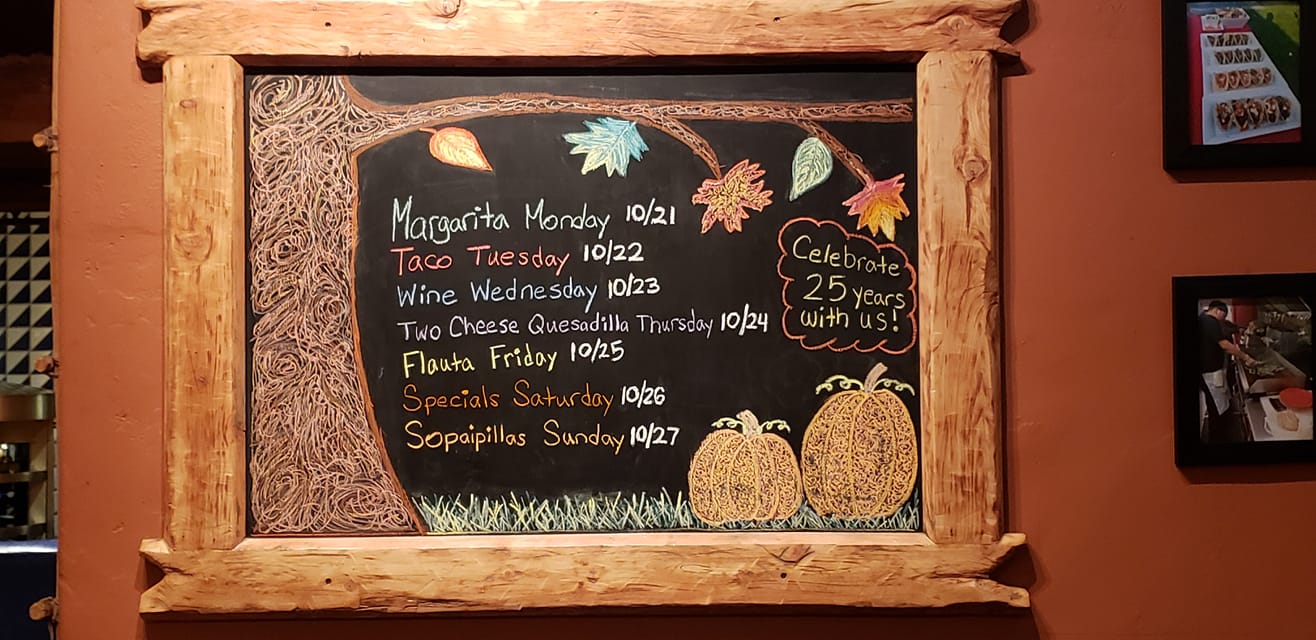 Margarita Monday 10/21
Taco Tuesday 10/22
Wine Wednesday 10/23
Two Cheese Quesadilla Thursday 10/24
Flauta Friday 10/25
Specials Saturday 10/26
Sopaipillas Sunday 10/27
Celebrate
25 years
with us!